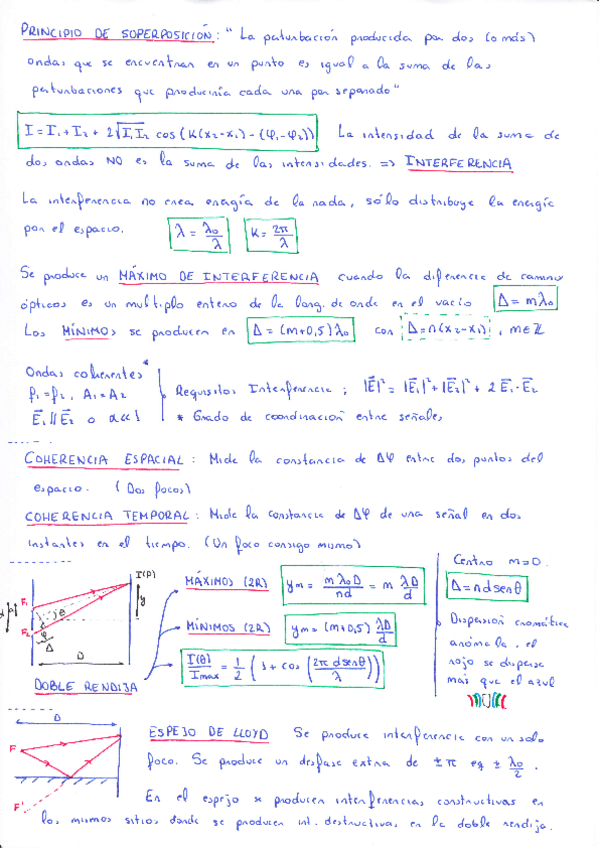 PRINCIPIO DE SOPERPOSICIÓN: "La perturbación producida por dos (o más)
ondas que se encuentran en un punto es igual a la suma de las
perturbaciones que produciría cada una por separado"
I = I₁ + I₂ + 2√(I₁I₂) cos (K(x₂-x₁) - (φ₁-φ₂)) La intensidad de la suma de
dos ondas NO es la suma de las intensidades. => INTERFERENCIA
La interferencia no crea energía de la nada, sólo distribuye la energía
por el espacio. λ = λ₀/λ K = 2π/λ
Se produce un MÁXIMO DE INTERFERENCIA cuando la diferencia de camino
ópticos es un multiplo entero de la long. de onda en el vacío Δ = mλ₀
Los MÍNIMOS se producen en Δ = (m+0,5)λ₀ con Δ = n(x₂-x₁), m∈ℤ
Ondas coherentes*
f₁=f₂, A₁=A₂ Requisitos Interferencia; |E⃗|² = |E⃗₁|² + |E⃗₂|² + 2 E⃗₁·E⃗₂
E⃗₁∥E⃗₂ o α≪1 * Grado de coordinación entre señales
COHERENCIA ESPACIAL: Mide la constancia de Δφ entre dos puntos del
espacio. (Dos focos)
COHERENCIA TEMPORAL: Mide la constancia de Δφ de una señal en dos
instantes en el tiempo. (Un foco consigo mismo)
F₁ F₂ d θ φ Δ D I(P) y
DOBLE RENDIJA
MÁXIMOS (2R) ym = mλ₀D/nd = m λD/d
MÍNIMOS (2R) ym = (m+0,5) λD/d
I(θ)/Imax = 1/2 (1 + cos (2π d senθ/λ))
Centro m=0.
Δ = n d senθ
Dispersión cromática
anómala, el
rojo se dispersa
más que el azul
D
F
F'
ESPEJO DE LLOYD Se produce interferencia con un solo
foco. Se produce un desfase extra de ±π eq ± λ₀/2.
En el espejo se producen interferencias constructivas en
los mismos sitios donde se producen int. destructivas en la doble rendija.